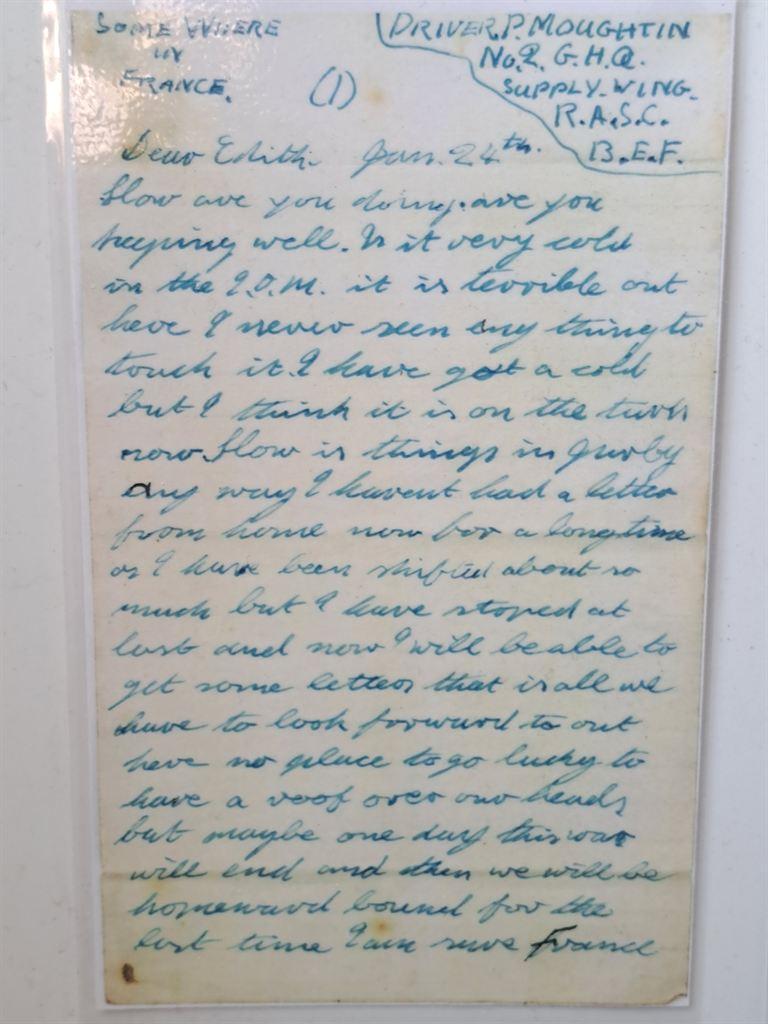 SOME WHERE
IN
FRANCE.
(1)
DRIVER. P. MOUGHTIN
No. 2. G. H. Q.
SUPPLY. WING.
R. A. S. C.
B. E. F.
Dear Edith. Jan. 24th.
How are you doing. are you
keeping well. Is it very cold
in the I.O.M. it is terrible out
here I never seen any thing to
touch it. I have got a cold
but I think it is on the turn
now. How is things in Jurby
any way I havent had a letter
from home now for a long time
as I have been shifted about so
much but I have stoped at
last and now I will be able to
get some letters that is all we
have to look forward to out
here no place to go lucky to
have a roof over our heads
but maybe one day this war
will end and then we will be
homeward bound for the
last time I am sure France